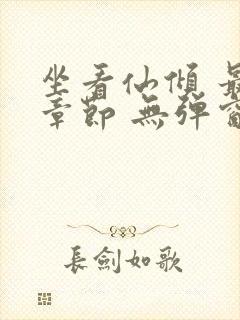 坐看仙傾
章節 無彈
長劍如歌